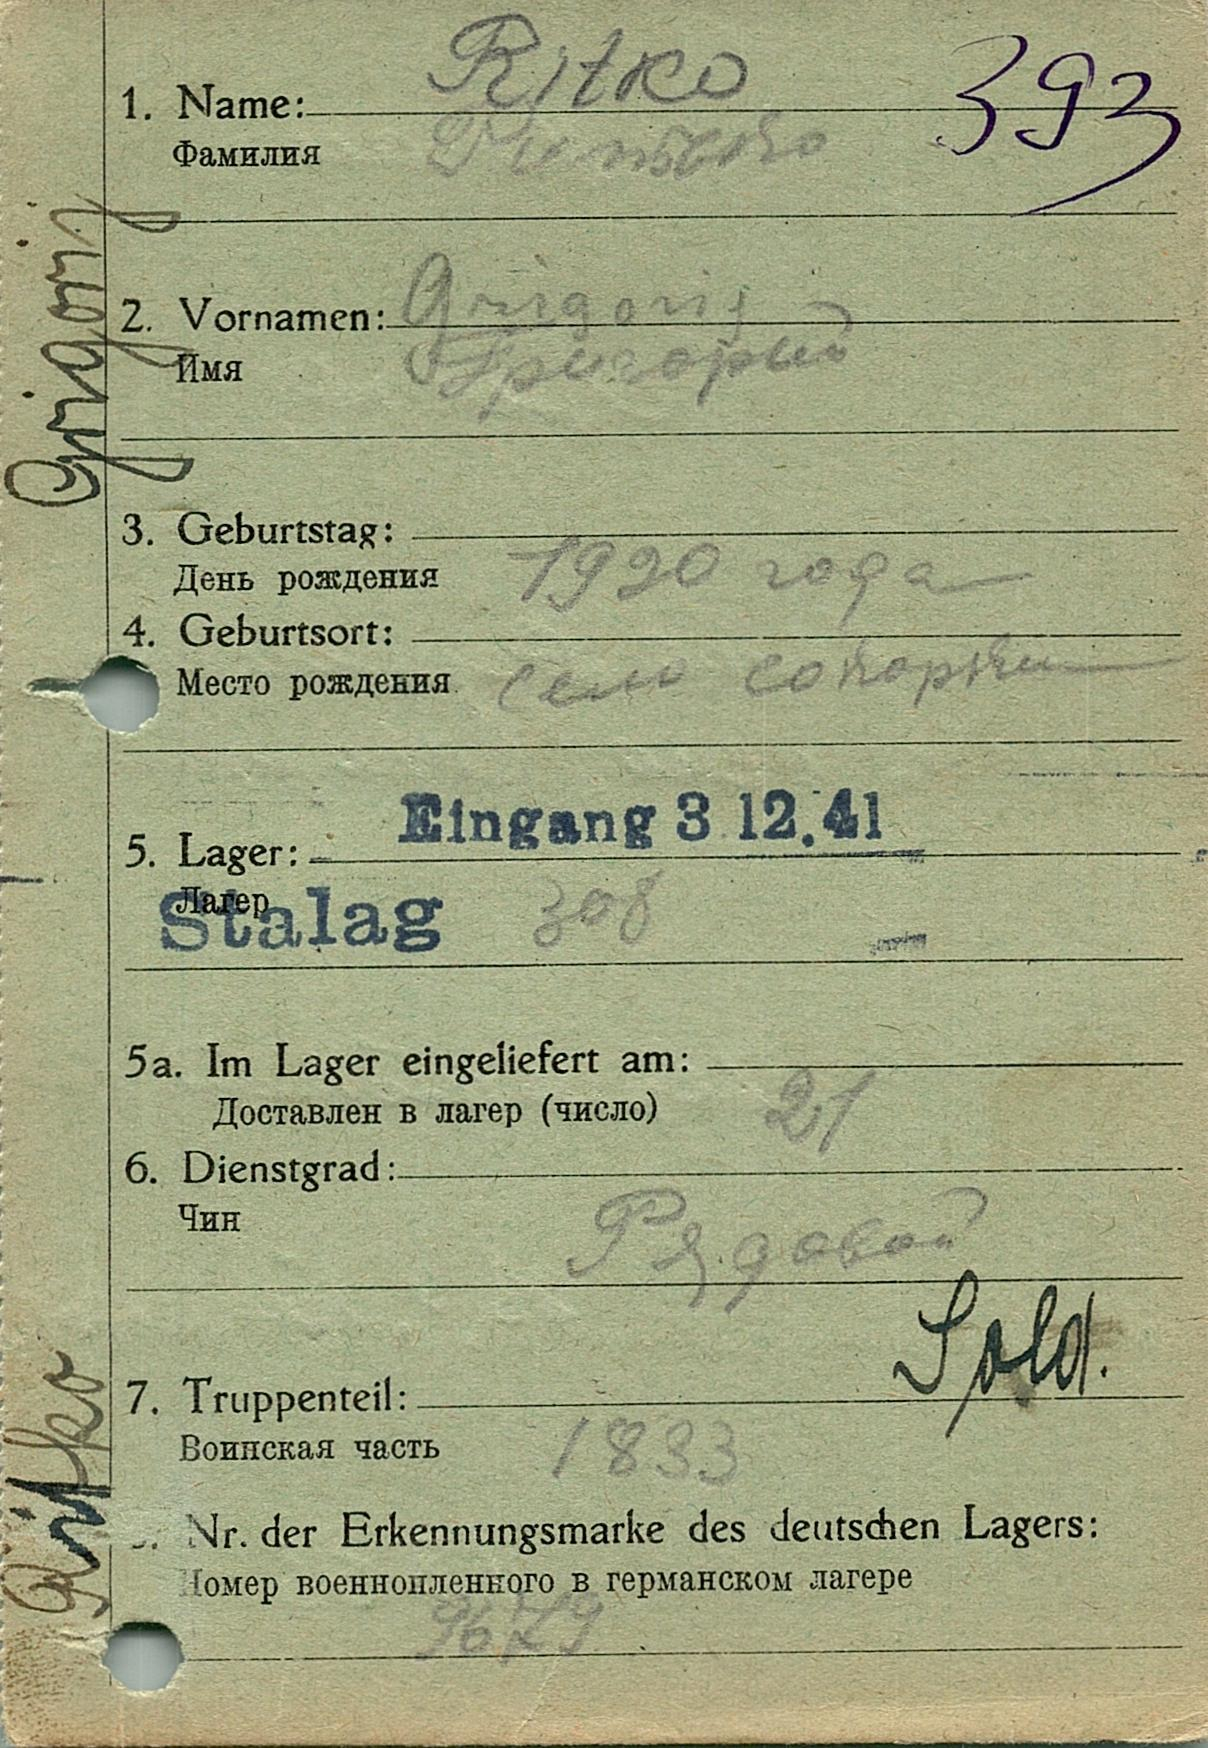 Ritko
393
1. Name:
Фамилия
Grigorij
2. Vornamen: Grigorij
Имя Григорий
3. Geburtstag:
День рождения 1920 года
4. Geburtsort:
Место рождения село
Eingang 3 12.41
5. Lager:
Лагер
Stalag 308
5a. Im Lager eingeliefert am:
Доставлен в лагер (число) 21
6. Dienstgrad:
Чин Рядовой
Sold.
7. Truppenteil:
Воинская часть 1833
Nr. der Erkennungsmarke des deutschen Lagers:
Номер военнопленного в германском лагере
9679
Ritko